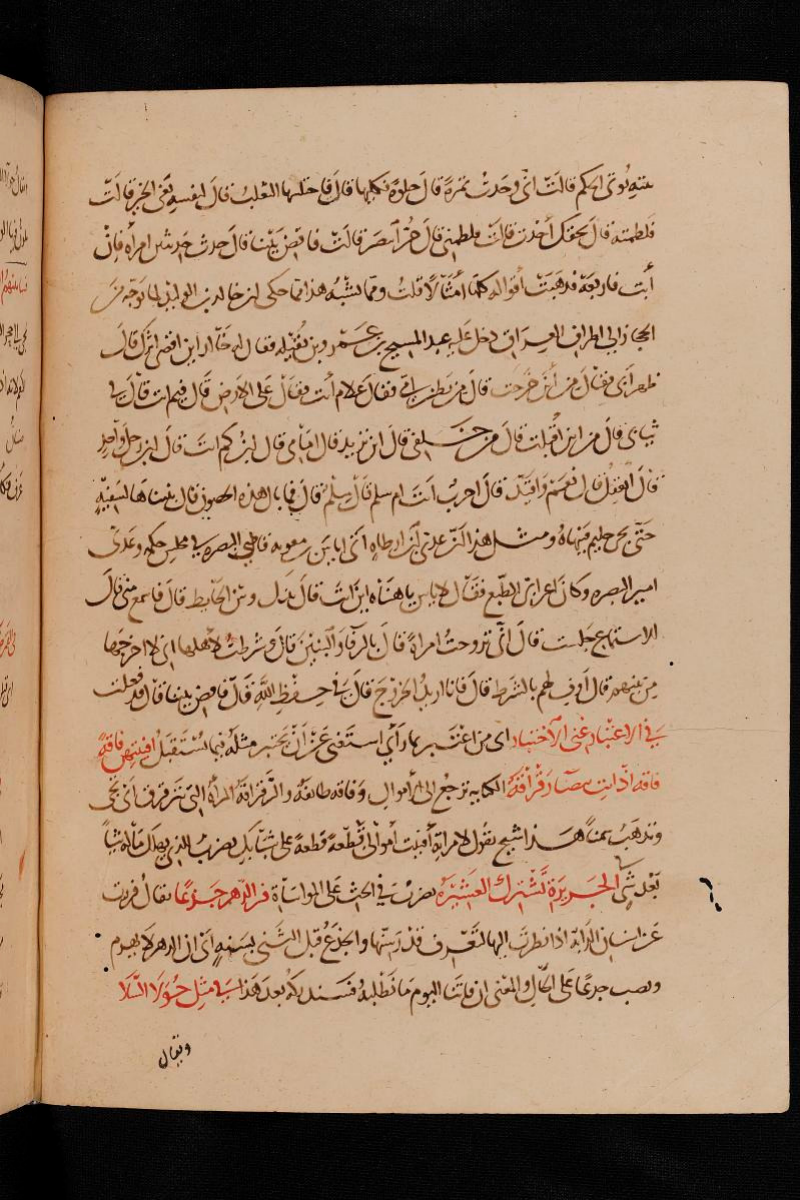 بيته يؤتى الحكم قالت انى وجدت تمرة قال حلوة فكليها قال فاختلها الثعلب قال لنفسه بغى الخير قالت
فلطمته قال بحقك أخذت قالت فلطمنى قال حر انتصر قالت فاقض بيننا قال حدث حديثين امرأة فإن
أبت فاربعة فذهبت أقواله كلها أمثالا قلت ومما يشبه هذا ما حكى ان خالد بن الوليد لما توجه من
الحجاز الى اطراف العراق دخل عليه عبد المسيح بن عمرو بن نفيلة فقال له خالد اين اقصى اثرك قال
ظهر أبى فقال من أين خرجت قال من بطن امى فقال علام أنت فقال على الارض قال فيم انت قال فى
ثيابى قال من اين أقبلت قال من خلفى قال اين تريد قال امامى قال ابن كم انت قال ابن رجل واحد
قال أتعقل قال نعم واقيد قال احرب أنت ام سلم قال سلم قال فما بال هذه الحصون قال بنيناها لسفيه
حتى يجئ حليم فينهاه ومثل هذا ان عدى بن ارطاه اتى اياس بن معوية قاضى البصرة فى مجلس حكمه وعدى
امير البصره وكان اعرابى الطبع فقال لاياس يا هناه اين انت قال بينك وبين الحائط قال فاسمع منى قال
للاستماع جلست قال انى تزوجت امرأة قال بالرفا والبنين قال وشرطت لاهلها ان لا اخرجها
من بينهم قال أوف لهم بالشرط قال فانا اريد الخروج قال فى حفظ الله قال فاقض بيننا قال قد فعلت
فى الاعتبار غنى الاختبار اى من اعتبر بما رأى استغنى عن أن يختبر مثله فيما يستقبل افنيتهن فاقة
فاقة اذ انت بيضاء رقراقة الكناية ترجع الى الأموال وفاقه طائفة والرقراقة المرأة التى تترقرق اى تجئ
وتذهب سمنا هذا شيخ يقول لامرأته أفنيت أموالى قطعة قطعة على شبابك يضرب للذى يهلك ماله شيأ
بعد شئ فى الجريرة تشترك العشيرة يضرب فى الحث على المواساة فر الدهر جذعا يقال فررت
عن اسنان الدابة اذا نظرت اليها لتعرف قدر سنها والجذع قبل الثنى بسنه اى ان الدهر لا يهرم
ونصب جذعا على الحال والمعنى ان فاتنا اليوم ما نطلبه فسندركه بعد هذا فى مثل حولاء السلا
ويقال